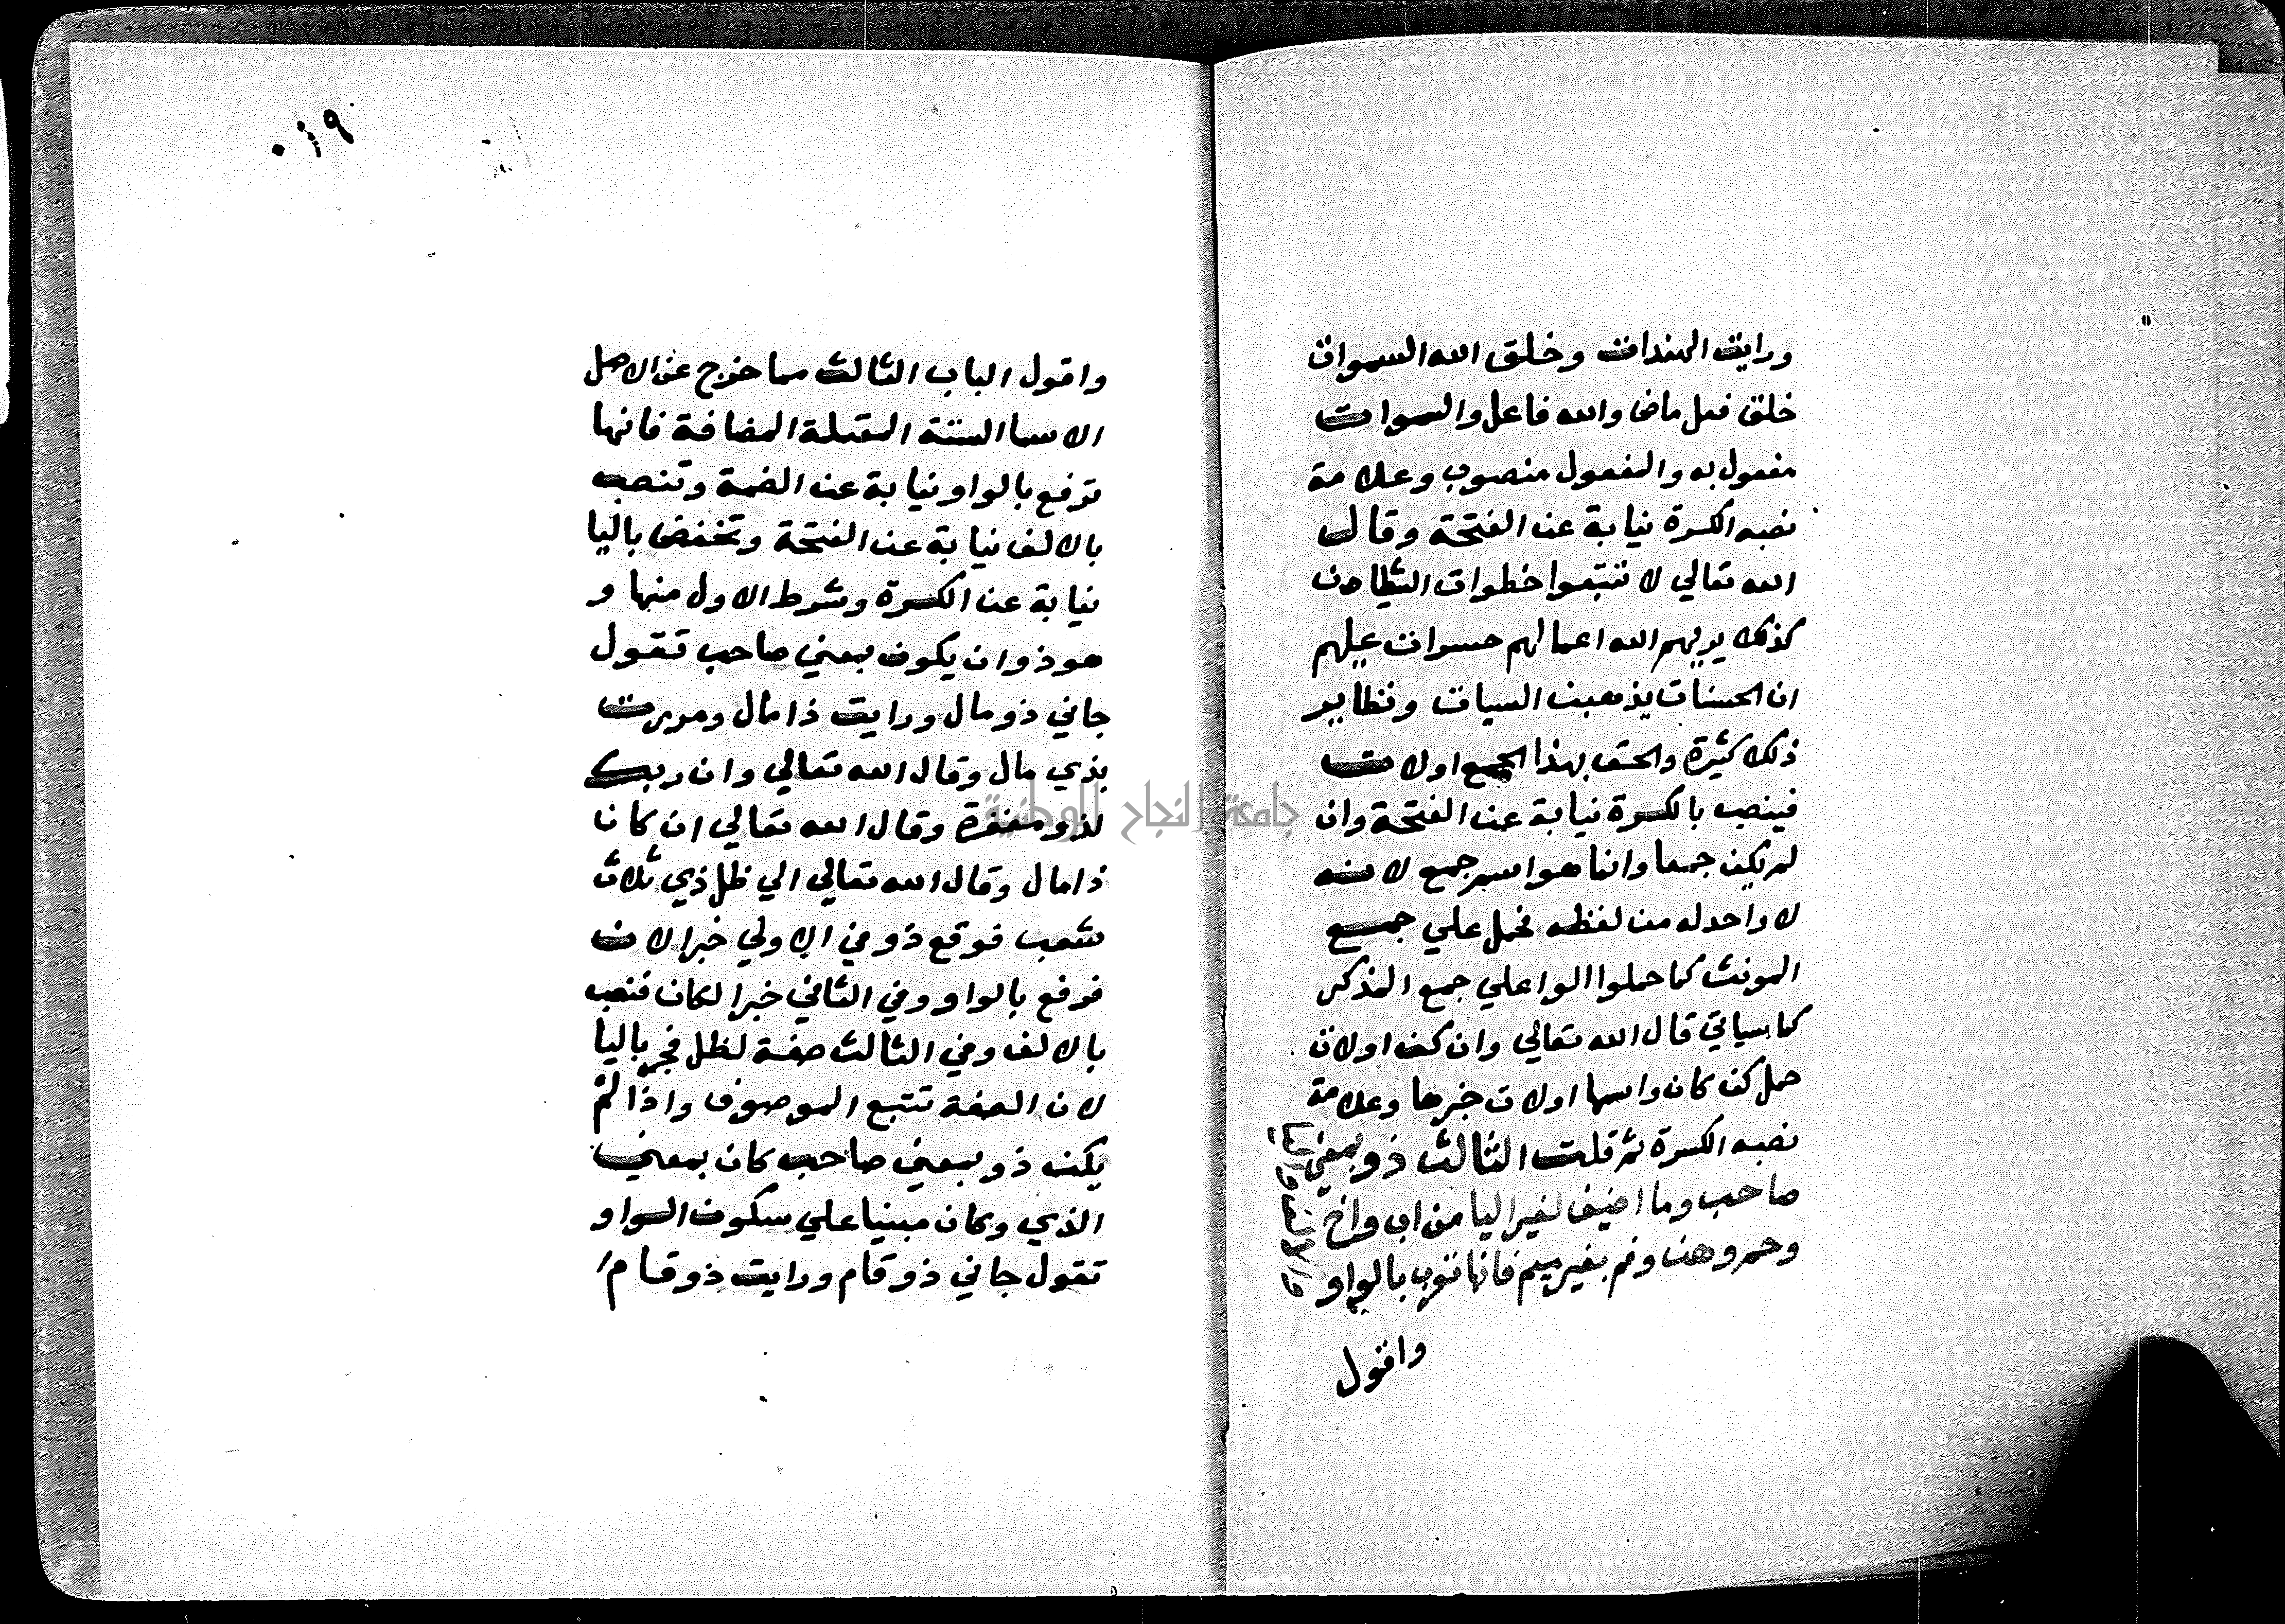 ورايت الهندات وخلق الله السموات
خلق فعل ماض والله فاعل والسموات
مفعول به والمفعول منصوب وعلامة
نصبه الكسرة نيابة عن الفتحة وقال
الله تعالي لا تتبعوا خطوات الشيطان
كذلك يريهم الله اعمالهم حسرات عليهم
ان الحسنات يذهبن السيات ونظاير
ذلك كثيرة والحق بهذا الجمع اولات
فينصب بالكسرة نيابة عن الفتحة وان
لم يكن جمعا وانما هو اسم جمع لانه
لا واحد له من لفظه فحمل علي جمع
المونث كما حملوا الوا علي جمع المذكر
كما سياتي قال الله تعالي وان كن اولات
حمل كن كان واسمها اولات خبرها وعلامة
نصبه الكسرة ثم قلت الثالث ذو بمعني
صاحب وما اضيف لغير اليا من اب واخ
وحم وهن وفم بغير ميم فانها تعرب بالواو
والالف واليا
واقول
٠١٩
واقول الباب الثالث مما خرج عن الاصل
الاسما الستة المعتلة المضافة فانها
ترفع بالواو نيابة عن الضمة وتنصب
بالالف نيابة عن الفتحة وتخفض باليا
نيابة عن الكسرة وشرط الاول منها و
هو ذو ان يكون بمعني صاحب تقول
جاني ذو مال ورايت ذا مال ومررت
بذي مال وقال الله تعالي وان ربك
لذو مغفرة وقال الله تعالي ان كان
ذا مال وقال الله تعالي الي ظل ذي ثلاث
شعب فوقع ذو في الاولي خبرا لان
فرفع بالواو وفي الثاني خبرا لكان فنصب
بالالف وفي الثالث صفة لظل فجر باليا
لان الصفة تتبع الموصوف واذا لم
يكن ذو بمعني صاحب كان بمعني
الذي وكان مبنيا علي سكون الواو
تقول جاني ذو قام ورايت ذو قام
جامعة النجاح الوطنية